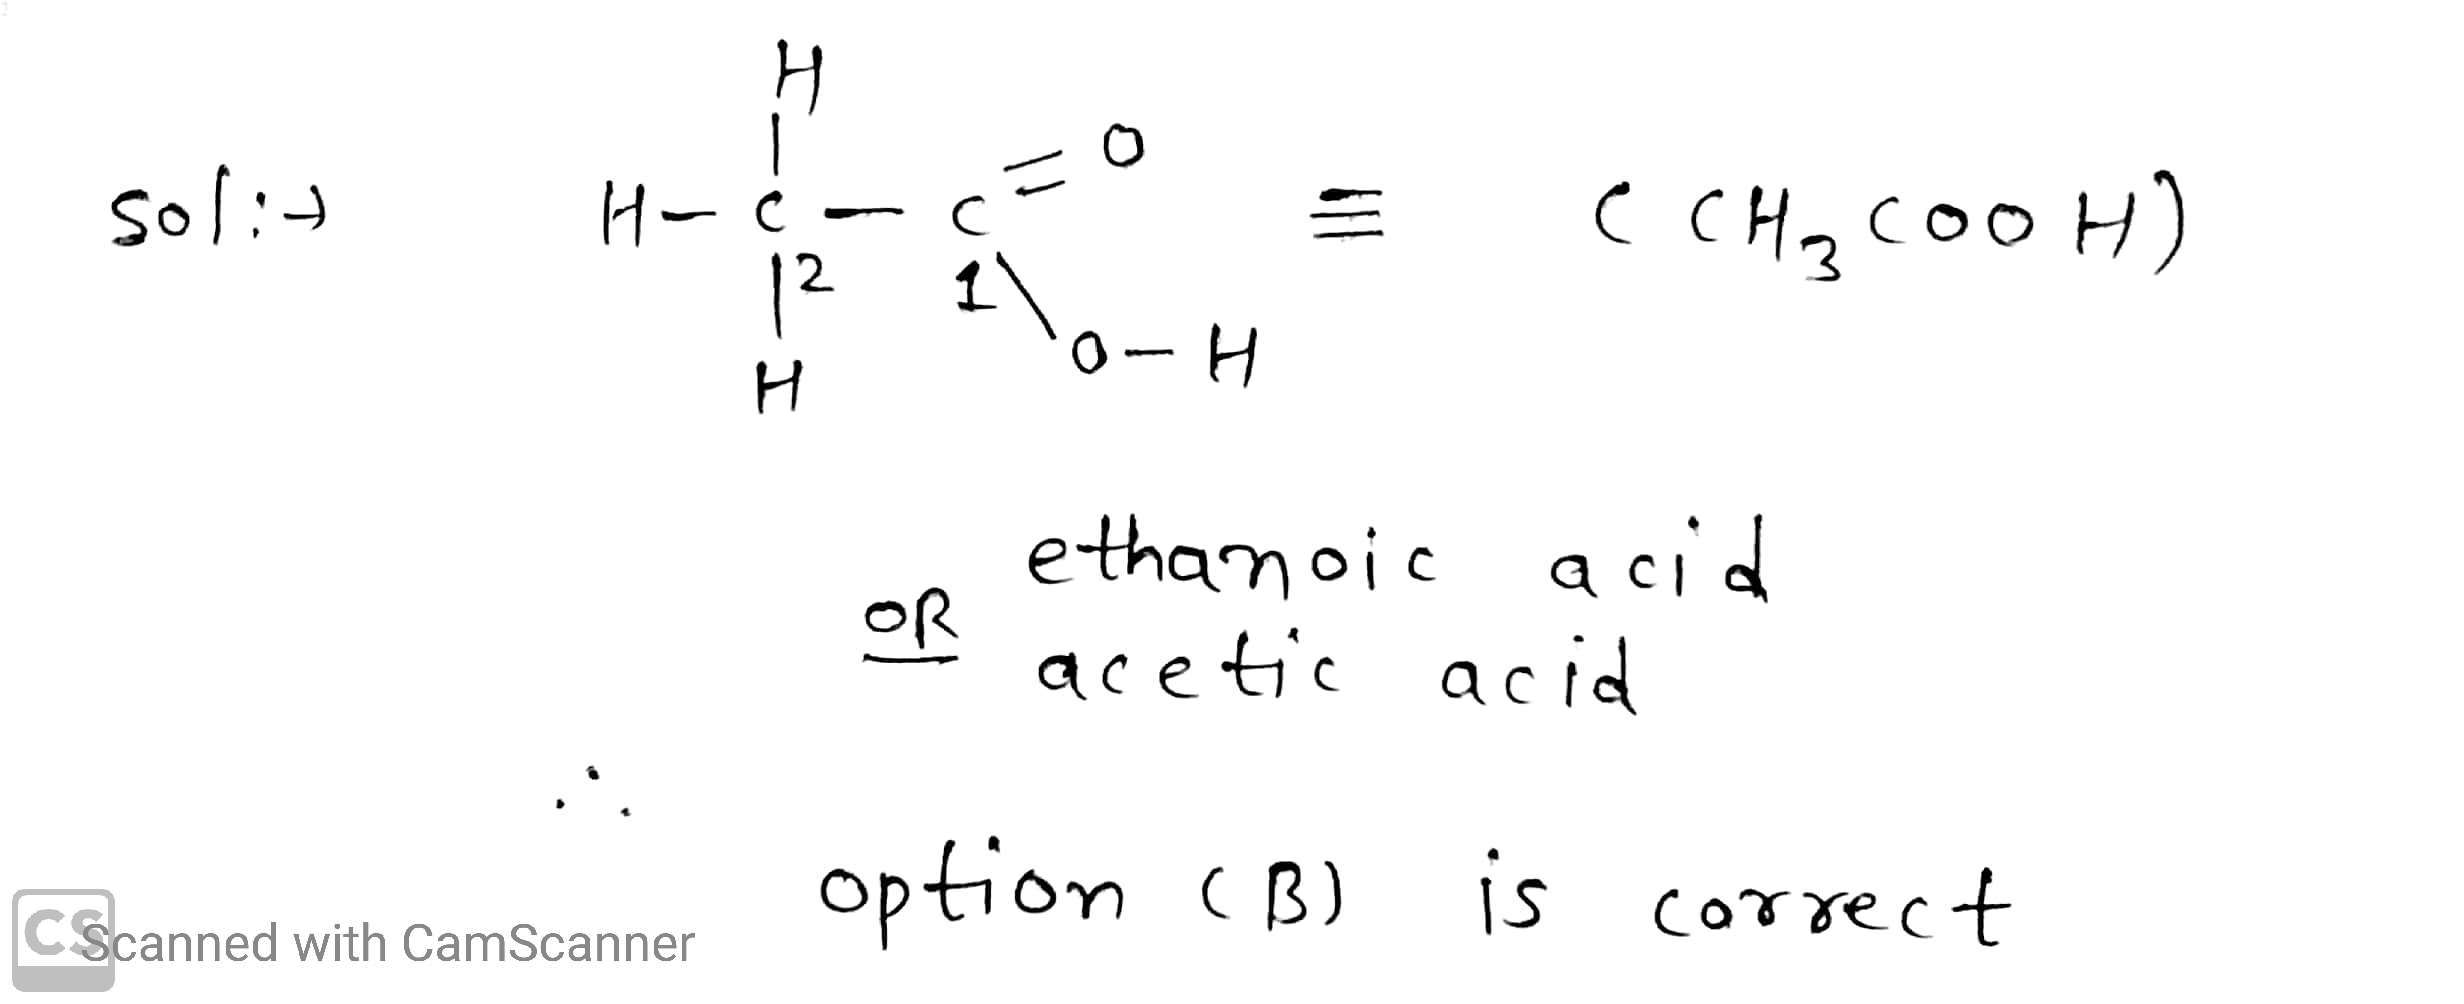 H
sol:→ H-C-C=O ≡ (CH₃COOH)
2 1
O-H
H
ethanoic acid
OR
acetic acid
∴
option (B) is correct
CS Scanned with CamScanner